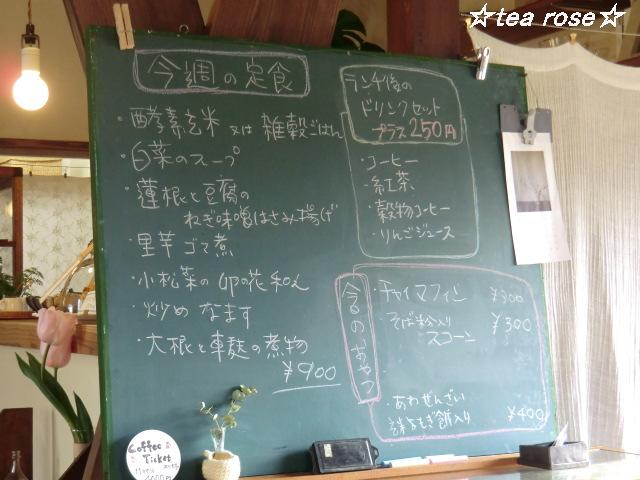 ☆tea rose☆
今週の定食
・酵素玄米 又は 雑穀ごはん
・白菜のスープ
・蓮根と豆腐の
ねぎ味噌はさみ揚げ
・里芋ゴマ煮
・小松菜の卯の花和え
・炒めなます
・大根と車麩の煮物
¥900
ランチ後の
ドリンクセット
プラス250円
・コーヒー
・紅茶
・穀物コーヒー
・りんごジュース
今日のおやつ
・チャイマフィン ¥300
・そば粉入り
スコーン ¥300
・あわぜんざい
よもぎ餅入り ¥400
Coffee
Ticket